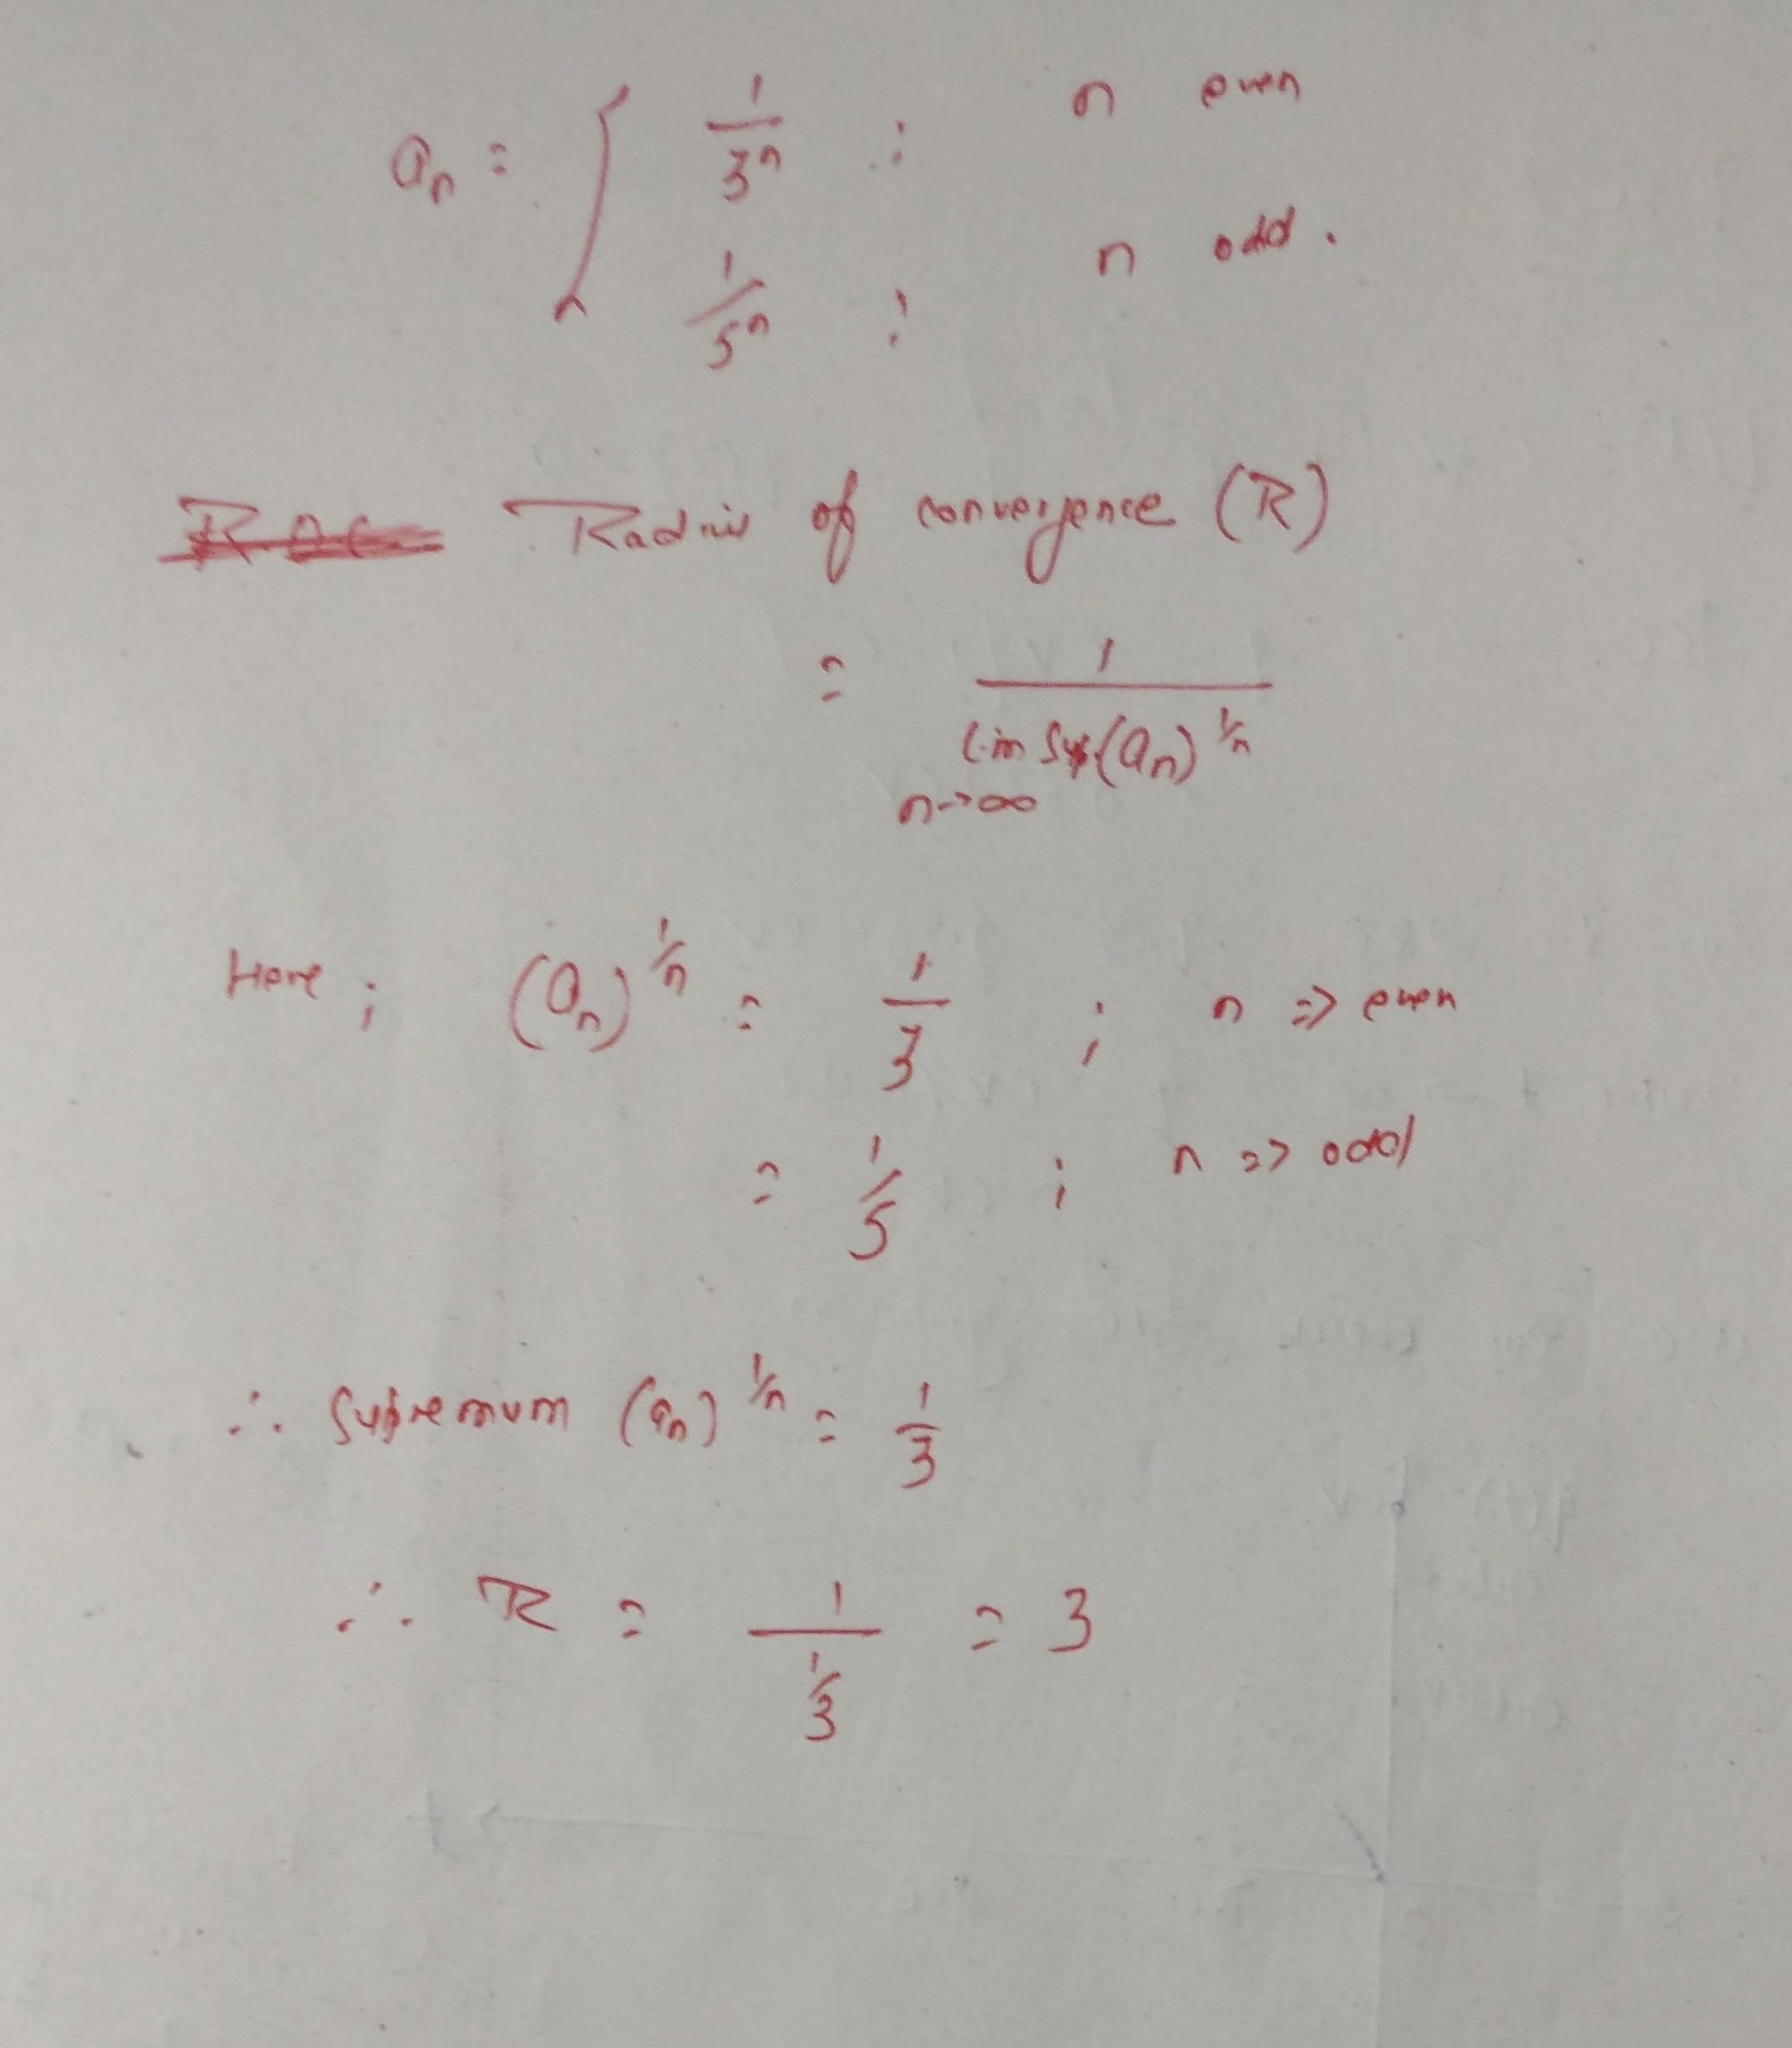 aₙ = { 1/3ⁿ ; n even
1/5ⁿ ; n odd.
Radius of convergence (R)
= 1 / lim sup (aₙ)^(1/n)
n→∞
Here ; (aₙ)^(1/n) = 1/3 ; n ⇒ even
= 1/5 ; n ⇒ odd
∴ Supremum (aₙ)^(1/n) = 1/3
∴ R = 1/(1/3) = 3